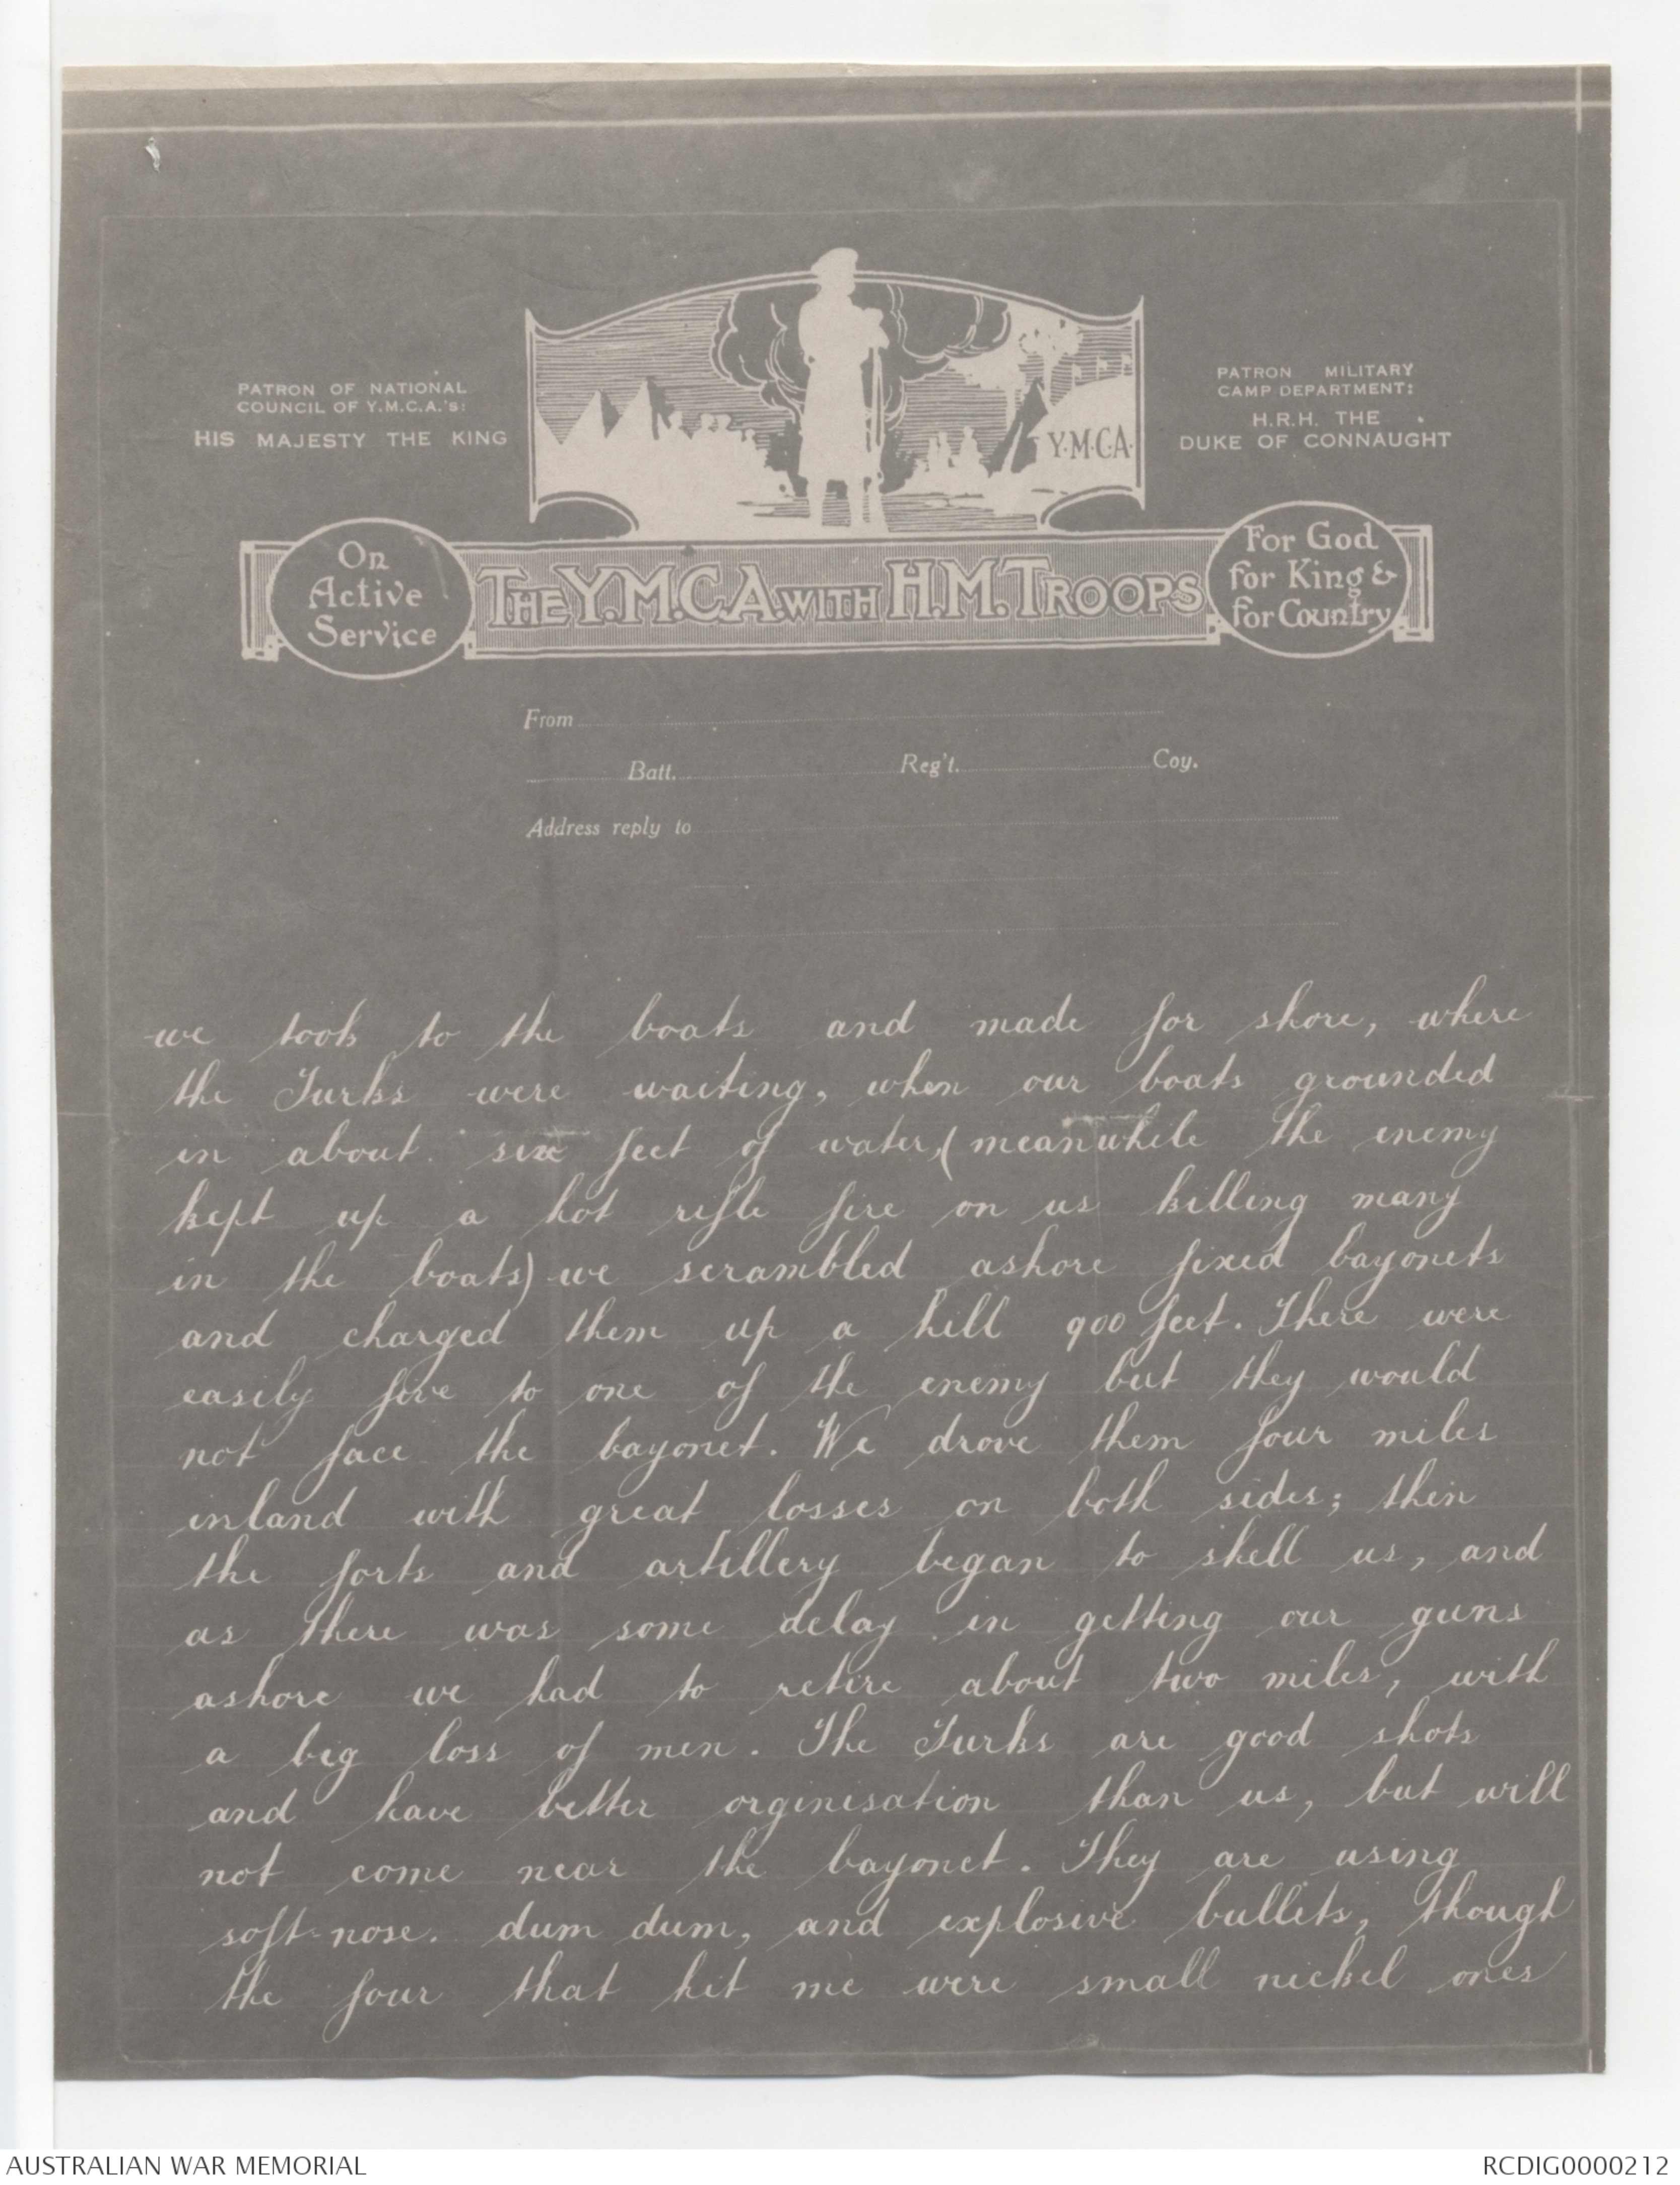 PATRON OF NATIONAL
COUNCIL OF Y.M.C.A.'s:
HIS MAJESTY THE KING
Y.M.C.A.
PATRON MILITARY
CAMP DEPARTMENT:
H.R.H. THE
DUKE OF CONNAUGHT
On
Active
Service
THE Y.M.C.A. WITH H.M. TROOPS
For God
for King &
for Country
From
Batt. Reg't. Coy.
Address reply to
we took to the boats and made for shore, where
the Turks were waiting, when our boats grounded
in about six feet of water, (meanwhile the enemy
kept up a hot rifle fire on us killing many
in the boats) we scrambled ashore fixed bayonets
and charged them up a hill 900 feet. There were
easily five to one of the enemy but they would
not face the bayonet. We drove them four miles
inland with great losses on both sides; then
the forts and artillery began to shell us, and
as there was some delay in getting our guns
ashore we had to retire about two miles, with
a big loss of men. The Turks are good shots
and have better orginisation than us, but will
not come near the bayonet. They are using
soft-nose. dum dum, and explosive bullets, though
the four that hit me were small nickel ones
AUSTRALIAN WAR MEMORIAL
RCDIG0000212